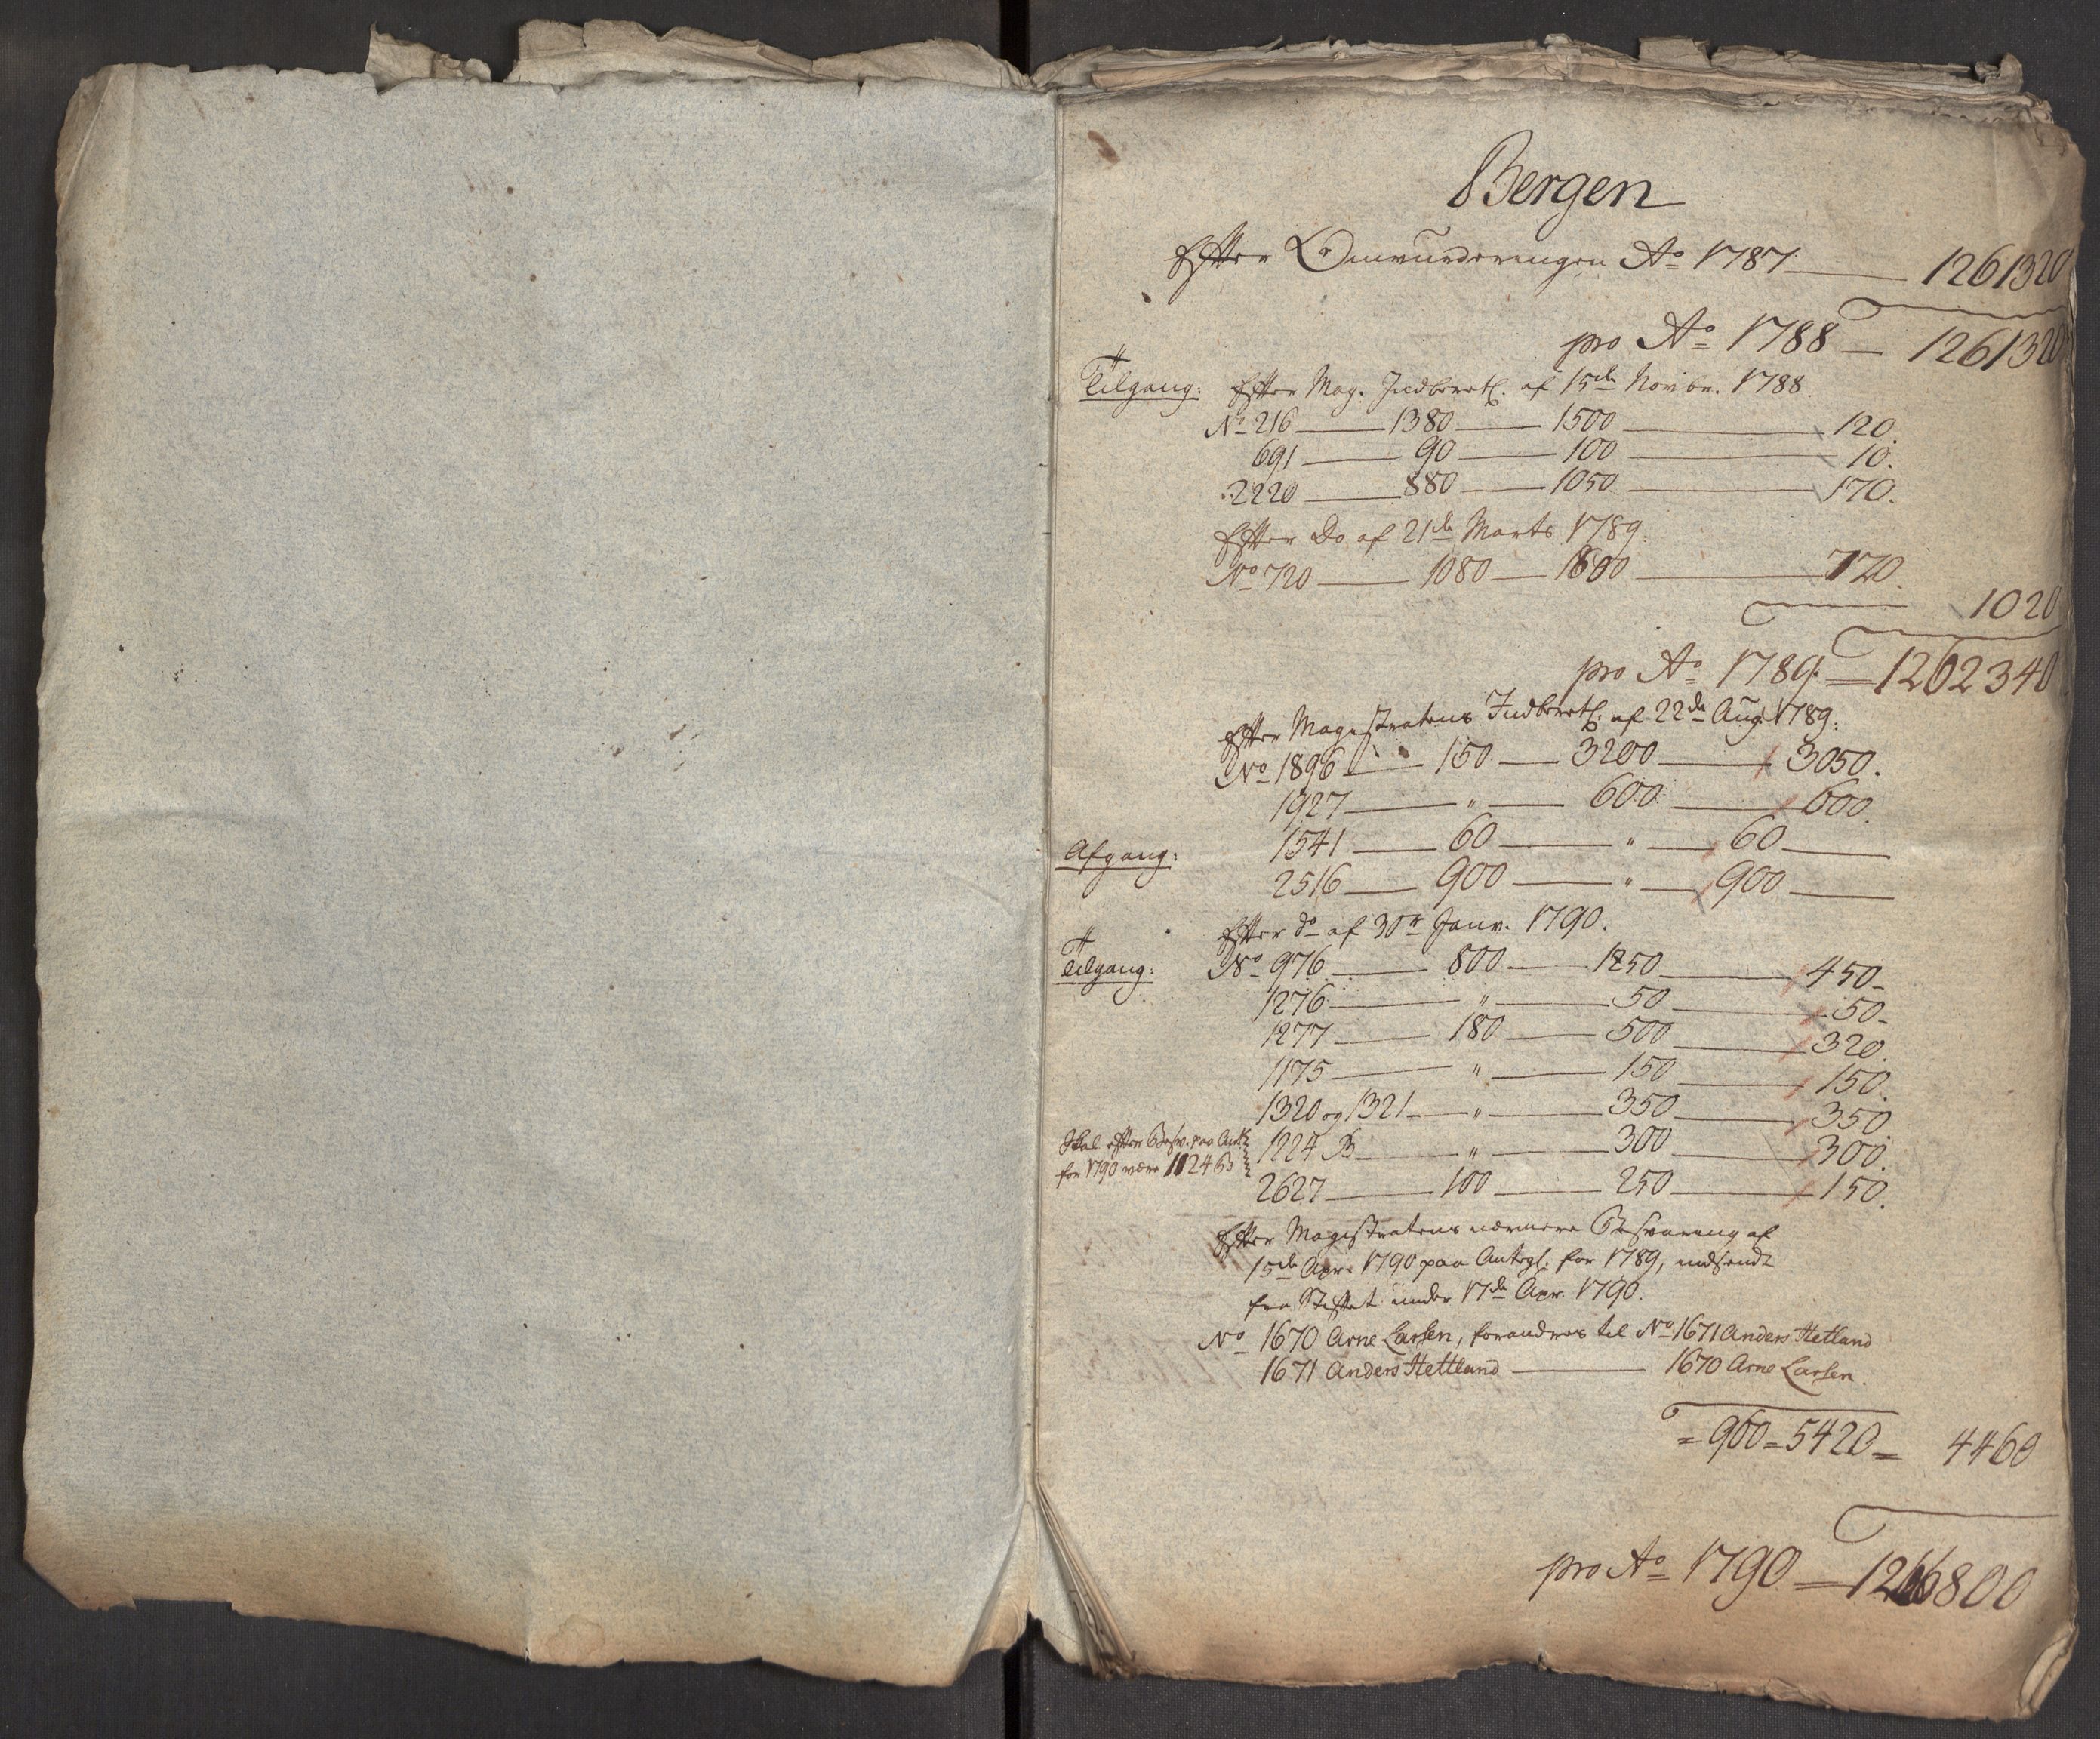 Bergen
Efter Omvurderingen Ao 1787 — 1261320
pro Ao 1788 — 1261320
Tilgang: Efter Mag. Indberetn. af 15de Novbr. 1788.
No 216 — 1380 — 1500 — 120.
691 — 90 — 100 — 10.
2220 — 880 — 1050 — 170.
Efter Do af 21de Marts 1789:
No 720 — 1080 — 1800 — 720.
1020
pro Ao 1789. — 1262340
Efter Magistratens Indberetn. af 22de Aug. 1789:
No 1896 — 150 — 3200 — 3050.
1927 — " — 600 — 600.
Afgang: 1541 — 60 — " — 60 —
2516 — 900 — " — 900 —
Efter do af 30te Janv. 1790.
Tilgang: No 976 — 800 — 1250 — 450-
1276 — " — 50 — 50-
1277 — 180 — 500 — 320.
1175 — " — 150 — 150.
1320 og 1321 — " — 350 — 350
Skal efter Besv. paa Ant.
for 1790 være 1124 B
1224 B — " — 300 — 300.
2627 — 100 — 250 — 150.
Efter Magistratens nærmere Besvaring af
15de Apr. 1790 paa Antegn. for 1789, indsendt
fra Stiftet under 17de Apr. 1790.
No 1670 Arne Larsen, forandres til No 1671 Anders Hetland
1671 Anders Hettland — 1670 Arne Larsen.
= 960 = 5420 = 4460
pro Ao 1790 — 1266800